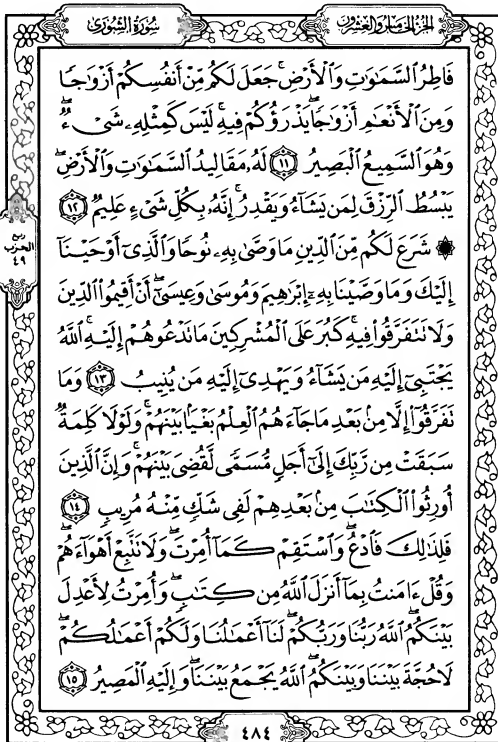 سُورَةُ الشُّورَىٰ
الجُزءُ الخَامِسُ وَالعِشْرُون
فَاطِرُ السَّمَٰوَٰتِ وَالْأَرْضِ ۚ جَعَلَ لَكُم مِّنْ أَنفُسِكُمْ أَزْوَٰجًا
وَمِنَ الْأَنْعَٰمِ أَزْوَٰجًا ۖ يَذْرَؤُكُمْ فِيهِ ۚ لَيْسَ كَمِثْلِهِۦ شَىْءٌ ۖ
وَهُوَ السَّمِيعُ الْبَصِيرُ ١١ لَهُۥ مَقَالِيدُ السَّمَٰوَٰتِ وَالْأَرْضِ ۖ
يَبْسُطُ الرِّزْقَ لِمَن يَشَآءُ وَيَقْدِرُ ۚ إِنَّهُۥ بِكُلِّ شَىْءٍ عَلِيمٌ ١٢
۞ شَرَعَ لَكُم مِّنَ الدِّينِ مَا وَصَّىٰ بِهِۦ نُوحًا وَالَّذِىٓ أَوْحَيْنَآ
إِلَيْكَ وَمَا وَصَّيْنَا بِهِۦٓ إِبْرَٰهِيمَ وَمُوسَىٰ وَعِيسَىٰٓ ۖ أَنْ أَقِيمُوا۟ الدِّينَ
وَلَا تَتَفَرَّقُوا۟ فِيهِ ۚ كَبُرَ عَلَى الْمُشْرِكِينَ مَا تَدْعُوهُمْ إِلَيْهِ ۚ اللَّهُ
يَجْتَبِىٓ إِلَيْهِ مَن يَشَآءُ وَيَهْدِىٓ إِلَيْهِ مَن يُنِيبُ ١٣ وَمَا
تَفَرَّقُوٓا۟ إِلَّا مِنۢ بَعْدِ مَا جَآءَهُمُ الْعِلْمُ بَغْيًۢا بَيْنَهُمْ ۚ وَلَوْلَا كَلِمَةٌ
سَبَقَتْ مِن رَّبِّكَ إِلَىٰٓ أَجَلٍ مُّسَمًّى لَّقُضِىَ بَيْنَهُمْ ۚ وَإِنَّ الَّذِينَ
أُورِثُوا۟ الْكِتَٰبَ مِنۢ بَعْدِهِمْ لَفِى شَكٍّ مِّنْهُ مُرِيبٍ ١٤
فَلِذَٰلِكَ فَادْعُ ۖ وَاسْتَقِمْ كَمَآ أُمِرْتَ ۖ وَلَا تَتَّبِعْ أَهْوَآءَهُمْ ۖ
وَقُلْ ءَامَنتُ بِمَآ أَنزَلَ اللَّهُ مِن كِتَٰبٍ ۖ وَأُمِرْتُ لِأَعْدِلَ
بَيْنَكُمُ ۖ اللَّهُ رَبُّنَا وَرَبُّكُمْ ۖ لَنَآ أَعْمَٰلُنَا وَلَكُمْ أَعْمَٰلُكُمْ ۖ
لَا حُجَّةَ بَيْنَنَا وَبَيْنَكُمُ ۖ اللَّهُ يَجْمَعُ بَيْنَنَا ۖ وَإِلَيْهِ الْمَصِيرُ ١٥
ربع
الحزب
٤٩
٤٨٤